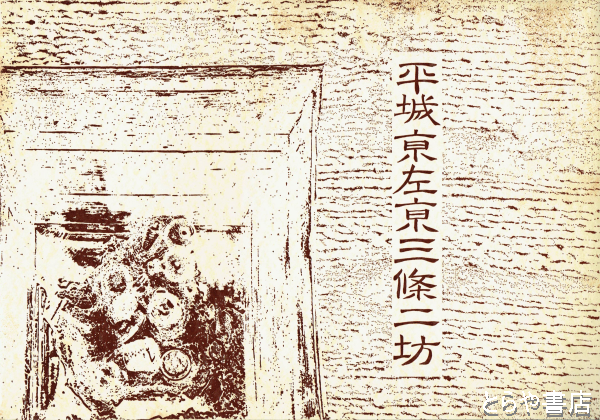 平城亰左亰三條二坊
とらや書店